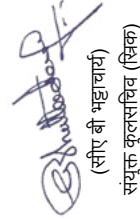 (सीए बी भट्टाचार्य)
संयुक्त कुलसचिव (स्निक)